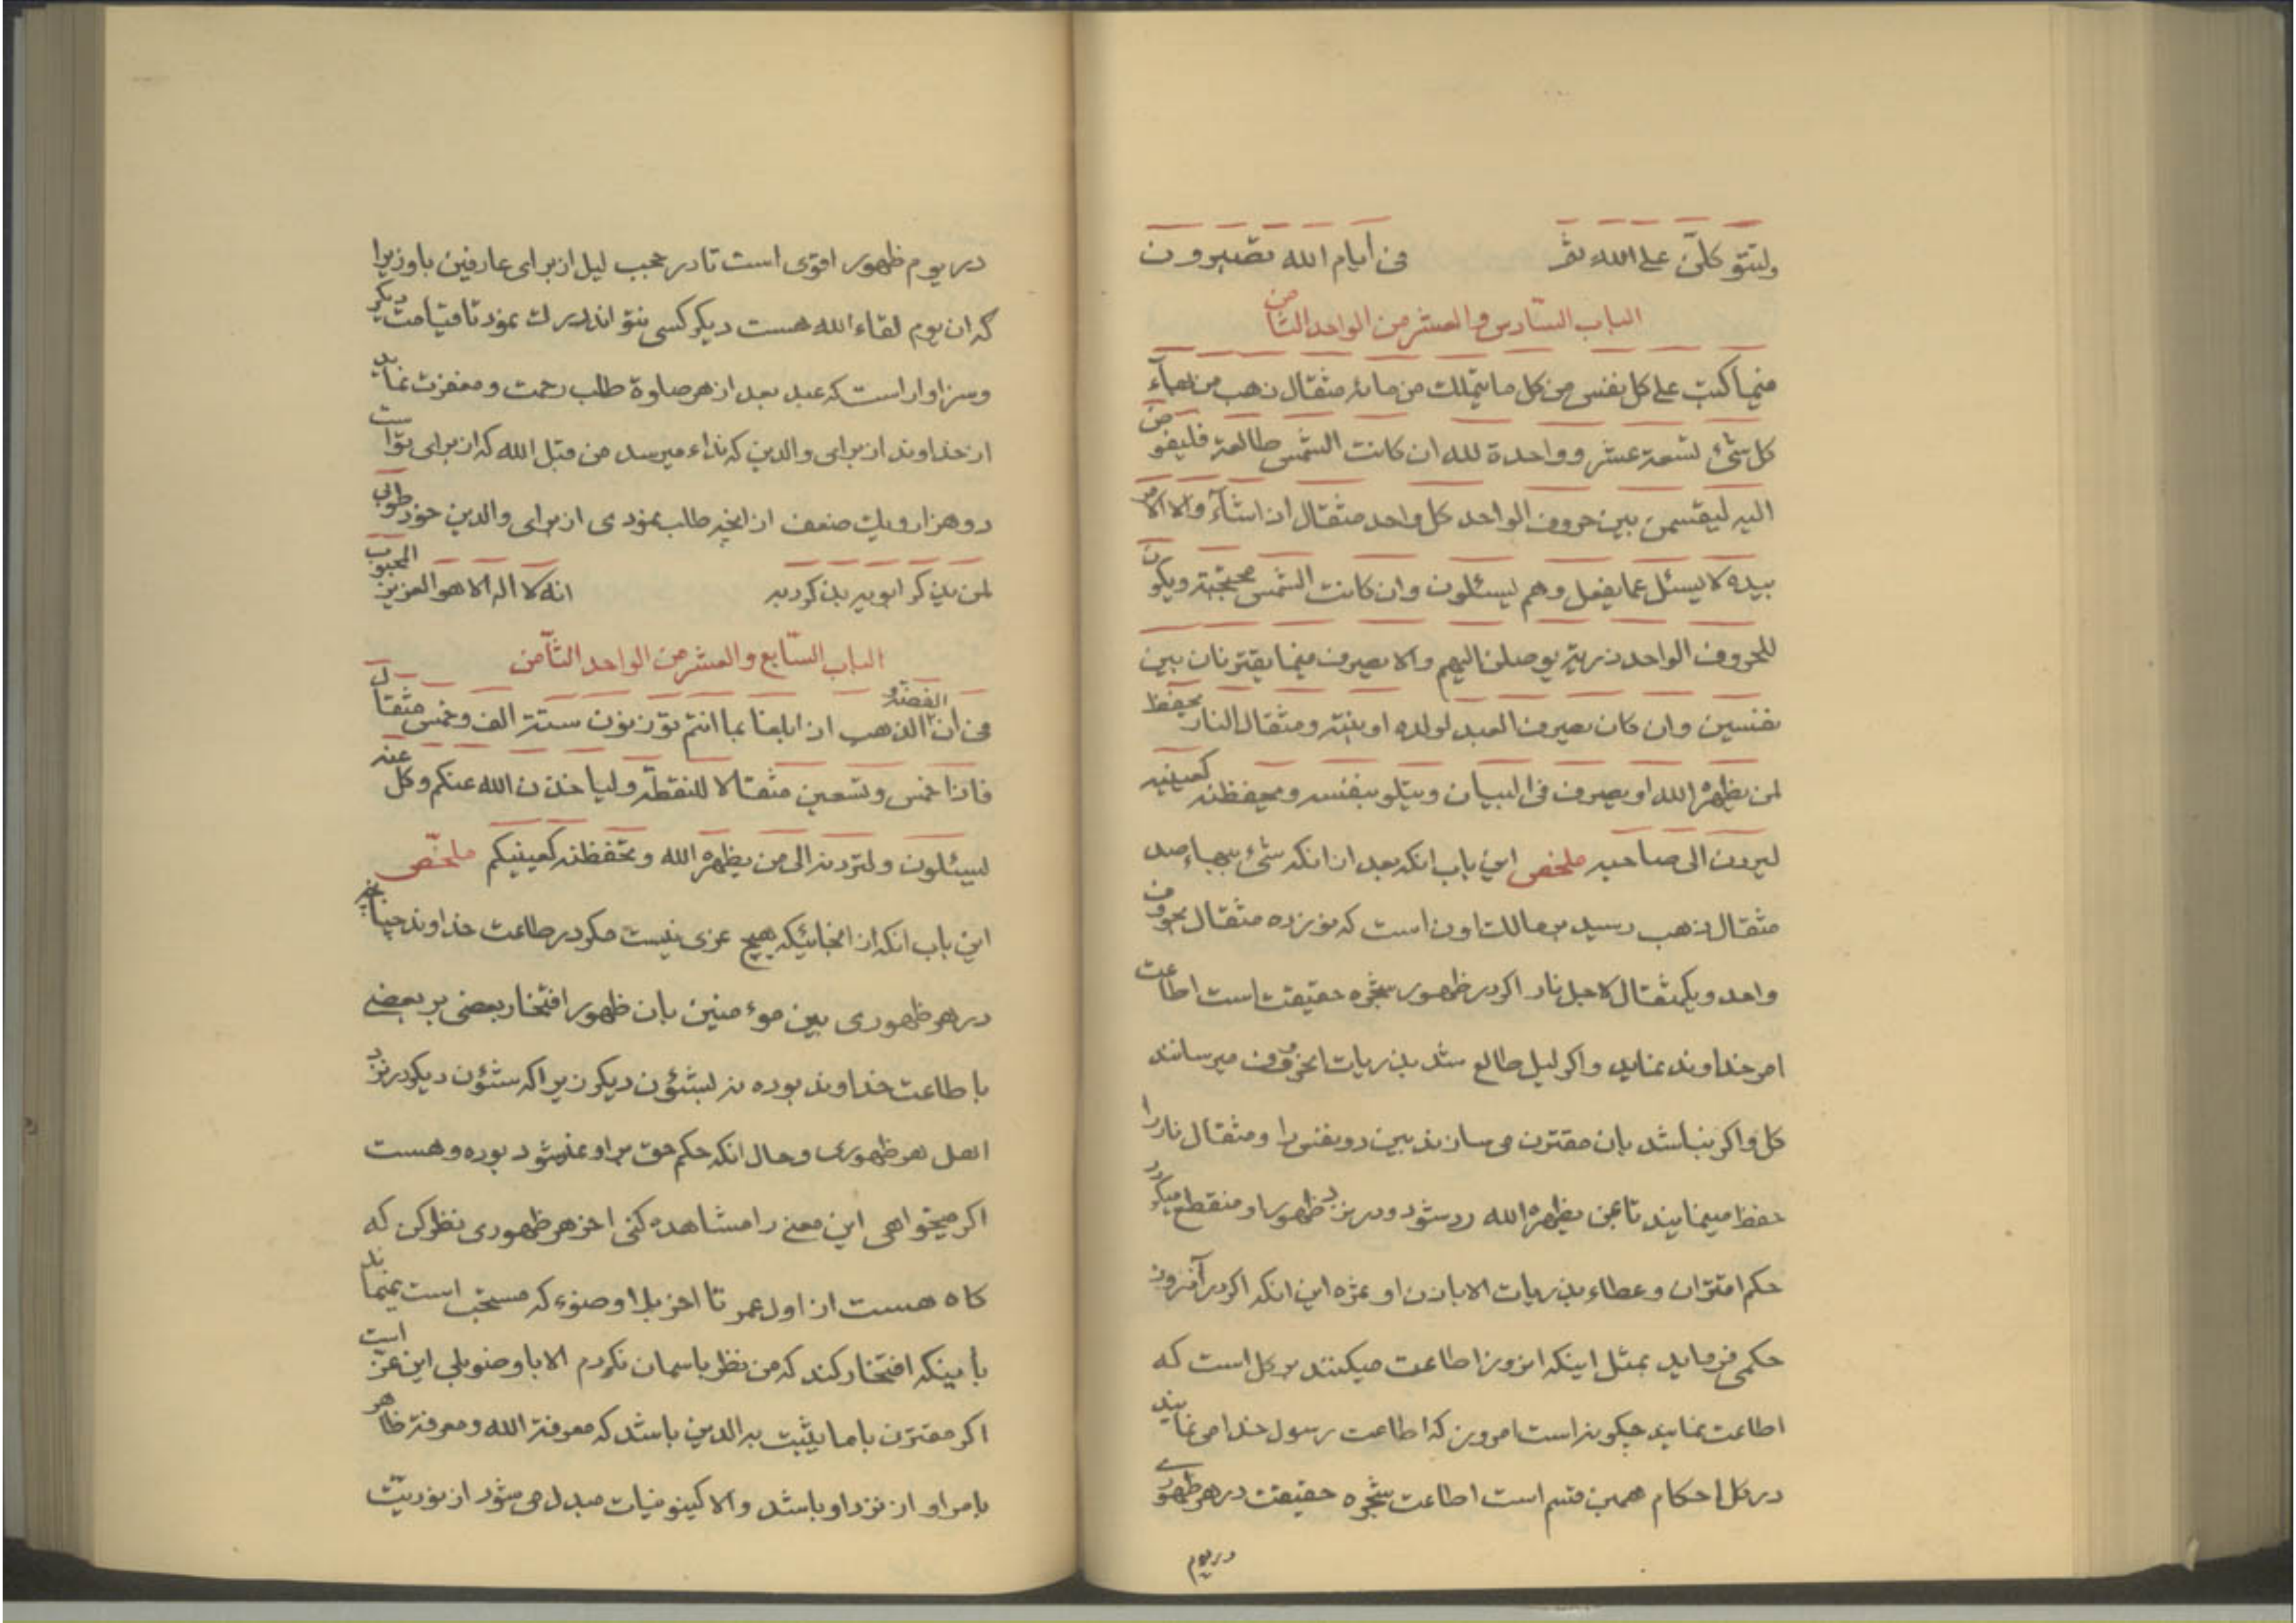 ولتتوکلن علی الله ثم فی ایام الله تصبرون
الباب السادس والعشر من الواحد الثامن
فیما کتب علی کل نفس من کل ما یتملک من مائة مثقال ذهب من بهاء
کل شئ تسعة عشر وواحدة لله ان کانت الشمس طالعة فلیفوضن
الیه لیقسمن بین حروف الواحد کل واحد مثقال اذا شاء والا الامر
بیده لا یسئل عما یفعل وهم یسئلون وان کانت الشمس محتجبة ویکون
للحروف الواحد ذریة یوصلن الیهم والا یصرف فیما یقترنان بین
نفسین وان کان یصرف العبد لولده او بنته ومثقال النار یحفظ
لمن یظهره الله او یصرف فی البیان ویتلو بنفسه ویحفظنه کعینیه
لیردن الی صاحبه ملخص این باب انکه بعد از انکه شئ ببهاء صد
مثقال ذهب رسید بر مالک اون است که نوزده مثقال بحروف
واحد ویکمثقال لاجل نار اکر در ظهور شجره حقیقت است اطاعت
امر خداوند نماید واکر لیل طالع شد بذریات انحروف میرسانند
کل واکر نباشد بان مقترن می سازند بین دو نفس را ومثقال نار را
حفظ مینمایند تا بمن یظهره الله رد شود ودر نزد ظهور او منقطع میکردد
حکم اقتران وعطاء بذریات الا باذن او ثمره این انکه اکر در آنروز
حکمی فرماید بمثل اینکه امروز اطاعت میکنند بر کل است که
اطاعت نمایند چکونه است امروز که اطاعت رسول خدا می نمایند
در کل احکام همین قسم است اطاعت شجره حقیقت در هر ظهوری
در یوم
در یوم ظهور اقوی است تا در حجب لیل از برای عارفین باو زیرا
که ان یوم لقاء الله هست دیکر کسی نتواند درک نمود تا قیامت دیکر
وسزاوار است که عبد بعد از هر صلوة طلب رحمت ومغفرت نماید
از خداوند از برای والدین که نداء میرسد من قبل الله که از برای تو است
دو هزار ویک ضعف از انچه طلب نمودی از برای والدین خود طوبی
لمن یذکر ابویه بذکر ربه انه لا اله الا هو العزیز المحبوب
الباب السابع والعشر من الواحد الثامن
فی ان الذهب والفضة اذا بلغا بما انتم توزنون ستة الف وخمس مثقال
فاذا خمس وتسعین مثقالا للنقطة ولیاخذن الله عنکم وکل عنه
لیسئلون ولتردنه الی من یظهره الله وتحفظنه کعینیکم ملخص
این باب انکه از انجائیکه هیچ عزی نیست مکر در طاعت خداوند چنانچه
در هر ظهوری بین موءمنین بان ظهور افتخار بعضی بر بعضی
باطاعت خداوند بوده نه بشئون دیکر زیرا که شئون دیکر در نزد
اهل هر ظهوری وحال انکه حکم حق بر او نمیشود بوده وهست
اکر میخواهی این معنی را مشاهده کنی اخر هر ظهوری نظر کن که
کاه هست از اول عمر تا اخر بلا وضوء که مستحب است نمینماید
باینکه افتخار کند که من نظر باسمان نکردم الا با وضو بلی این عز است
اکر مقترن باما یثبت به الدین باشد که معرفة الله ومعرفة ظاهر
بامر او از نزد او باشد والا کینونیات مبدل می شود از نوریت